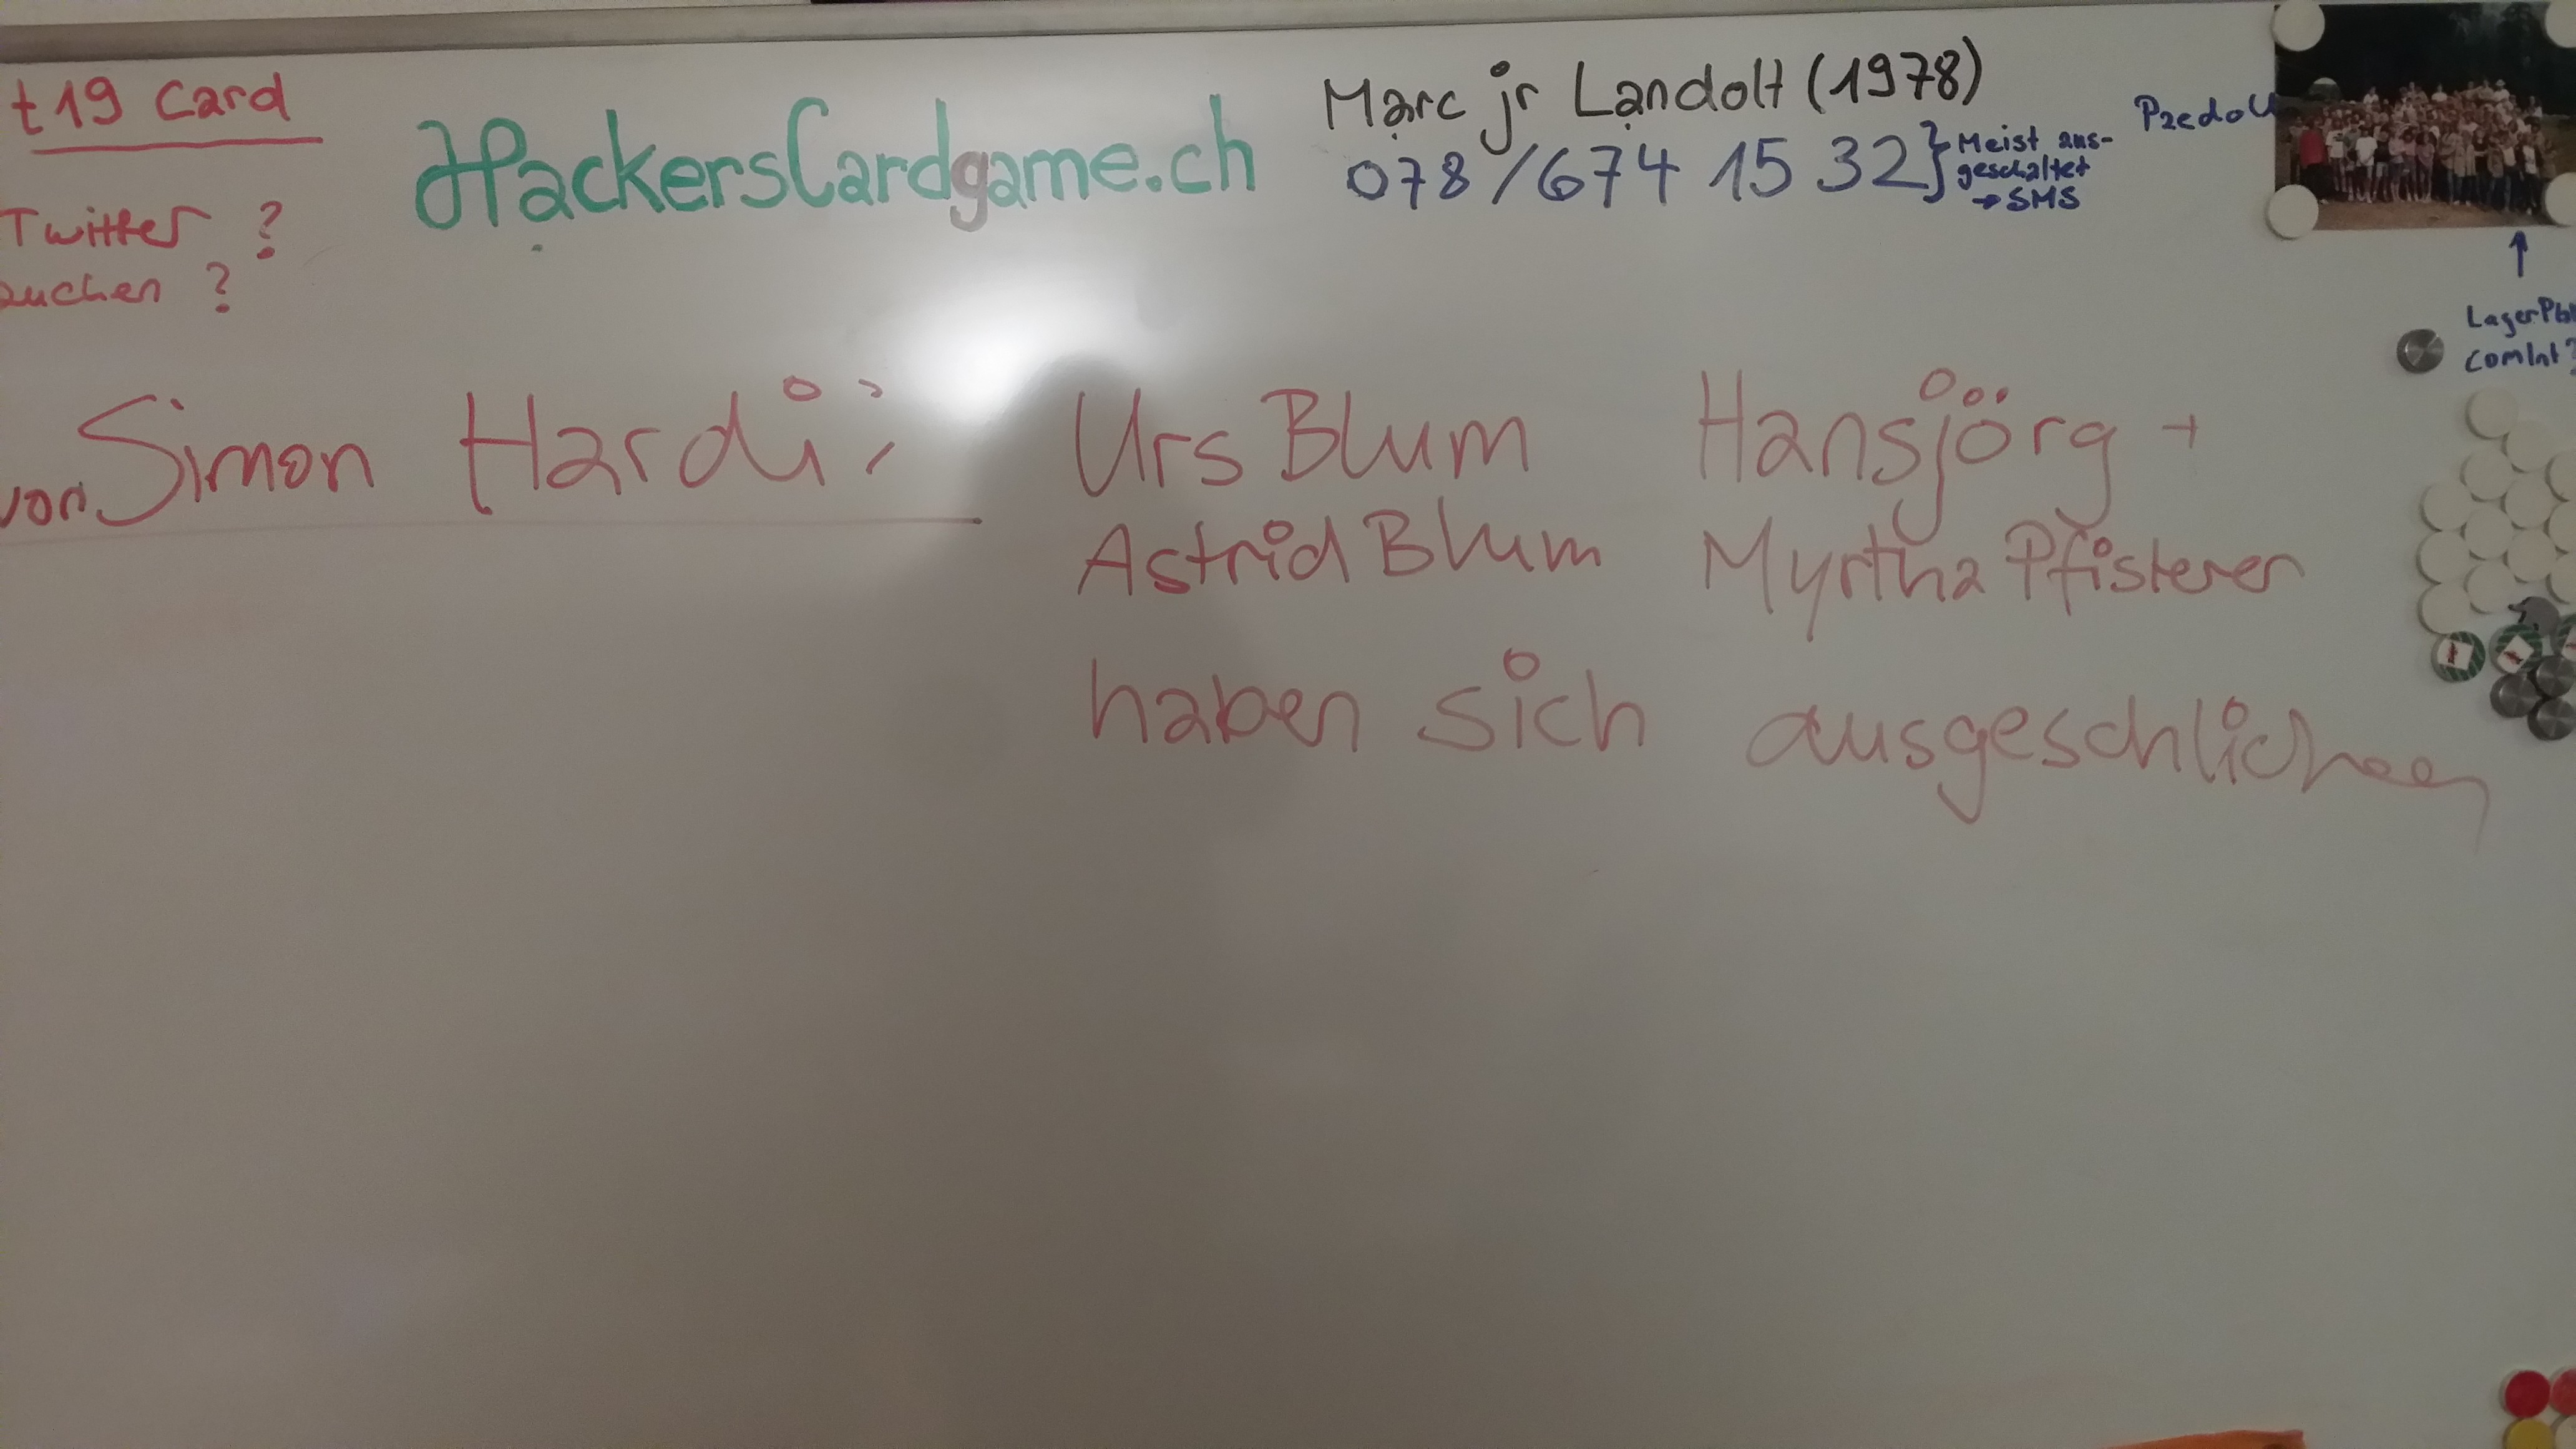 t19 Card
Twitter ?
suchen ?
HackersCardgame.ch
Marc jr Landolt (1978)
078/674 15 32} Meist aus-
geschaltet
→ SMS
↑
ComInt?
von Simon Hardi:
Urs Blum
Astrid Blum
Hansjörg +
Myrtha Pfisterer
haben sich ausgeschlichen